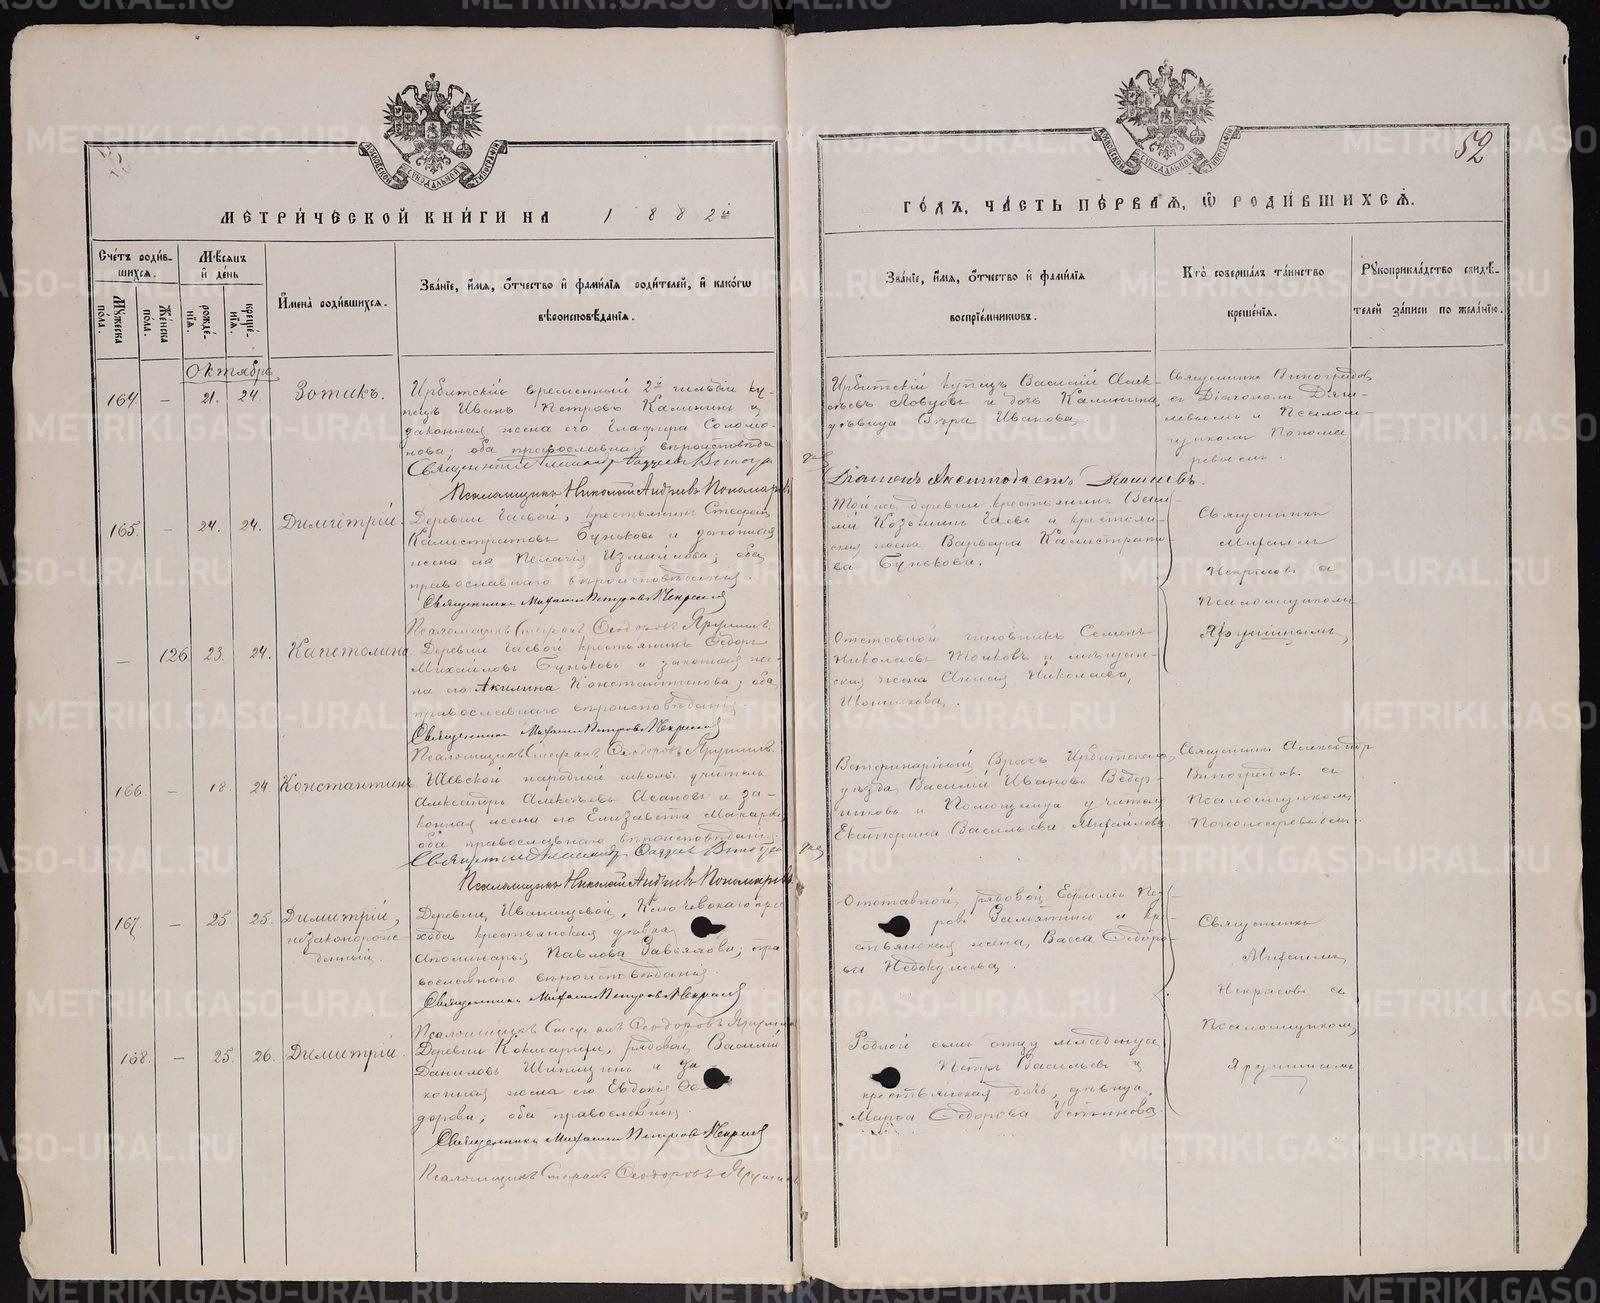 МЕТРИЧЕСКОЙ КНИГИ НА 1882й
ГОДЪ, ЧАСТЬ ПЕРВАЯ, Ѽ РОДИВШИХСЯ.
52
МОСКОВСКОЙ СѴНОДАЛЬНОЙ ТИПОГРАФІИ
МОСКОВСКОЙ СѴНОДАЛЬНОЙ ТИПОГРАФІИ
Счетъ родившихся.
Мужеска пола.
Женска пола.
Мѣсяцъ и день
рожденія.
крещенія.
Имена родившихся.
Званіе, имя, отчество и фамилія родителей, и какогѡ
вѣроисповѣданія.
Званіе, имя, отчество и фамилія
воспріемниковъ.
Кто совершалъ таинство
крещенія.
Рукоприкладство свидѣ-
телей записи по желанію.
Октябрь
164. — 21. 24. Зотикъ.
Ирбитскій временный 2й гильдіи ку-
пецъ Иванъ Петровъ Калининъ и
законная жена его Глафира Соломо-
нова; оба православнаго вѣроисповѣда
Псаломщикъ Николай Андреевъ Пономаревъ
Ирбитскій купецъ Василій Алек-
и дочь Калинина,
дѣвица Вѣра Иванова.
Священникъ Виноградовъ
съ Діакономъ
и Псалом-
щикомъ Понома-
ревымъ.
165. — 24. 24. Димитрій.
Деревни Гаевой, крестьянинъ Стефанъ
Калистратовъ Буньковъ и законная
жена его Пелагія Измайлова; оба
православнаго вѣроисповѣданія.
Священникъ Михаилъ Петровъ Некрасовъ
Псаломщикъ Стефанъ Ѳеодоровъ Ярушинъ
Той же деревни крестьянинъ Васи-
лій Козьминъ Гаевъ и крестьян-
ская жена Варвара Калистрато-
ва Бунькова.
Священникъ
Михаилъ
Некрасовъ съ
Псаломщикомъ
Ярушинымъ,
— 126 23. 24. Капетолина
Деревни Гаевой крестьянинъ Ѳедоръ
Михайловъ Буньковъ и законная же-
на его Акилина Константинова; оба
православнаго вѣроисповѣданія.
Священникъ Михаилъ Петровъ Некрасовъ
Псаломщикъ Стефанъ Ѳеодоровъ Ярушинъ.
Отставной чиновникъ Семенъ
Николаевъ и мѣщан-
ская жена Николаева,
Иконникова.
166. — 18. 24. Константинъ
народной школы учитель
Александръ Алексѣевъ и за-
конная жена его Елизавета Макарова
оба православнаго вѣроисповѣданія.
Псаломщикъ Николай Андреевъ Пономаревъ
Ветеринарный Врачъ Ирбитскаго
уѣзда, Василій Ивановъ Ведер-
никовъ и Помощница учителя
Екатерина Васильева Михайлова.
Священникъ Александръ
Виноградовъ съ
Псаломщикомъ
Пономаревымъ.
167. — 25. 25. Димитрій,
незаконорож-
денный.
Деревни Иванищевой, Ключевскаго при-
хода крестьянская дѣвка
Аполинарья Павлова Завьялова; пра-
вославнаго вѣроисповѣданія.
Священникъ Михаилъ Петровъ Некрасовъ
Псаломщикъ Стефанъ Ѳеодоровъ Ярушинъ
Отставной, рядовой Ефимъ Пет-
ровъ Замятинъ и кре-
стьянская жена, Васса Ѳедоро-
ва Недокушева.
Священникъ
Михаилъ
Некрасовъ съ
Псаломщикомъ
Ярушинымъ
168. — 25. 26. Димитрій.
Деревни Кокшарихи, рядовой Василій
Даниловъ Шипицинъ и за-
конная жена его Евдокія Ѳе-
дорова; оба православныя.
Священникъ Михаилъ Петровъ Некрасовъ
Псаломщикъ Стефанъ Ѳеодоровъ Ярушинъ
Родной сынъ отцу младенца
Петръ Васильевъ и
крестьянская дочь, дѣвица,
Марѳа Ѳедорова Устинова.
METRIKI.GASO-URAL.RU